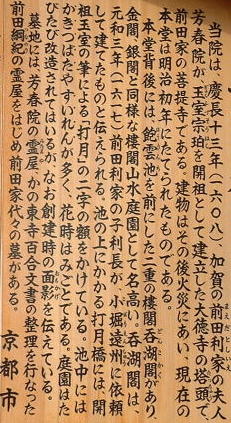 当院は、慶長十三年(一六〇八)、加賀の前田利家の夫人
芳春院が、玉室宗珀を開祖として建立した大徳寺の塔頭で、
前田家の菩提寺である。建物はその後火災にあい、現在の
本堂は明治初年にたてられたものである。
本堂背後には、飽雲池を前にした二重の楼閣呑湖閣があり
金閣、銀閣と同様な楼閣山水庭園として名高い。呑湖閣は、
元和三年(一六一七)前田利家の子利長が、小堀遠州に依頼
して建てたものと伝えられる。池の上にかかる打月橋には、開
祖玉室の筆による「打月」の二字の額をかけている。池中には
かきつばたやすいれんが多く、花時はみごとである。庭園はた
びたび改造されてはいるが、なお創建時の面影を伝えている。
墓地には、芳春院の霊屋、かの東寺百合文書の整理を行なった
前田綱紀の霊屋をはじめ前田家代々の墓がある。
京都市